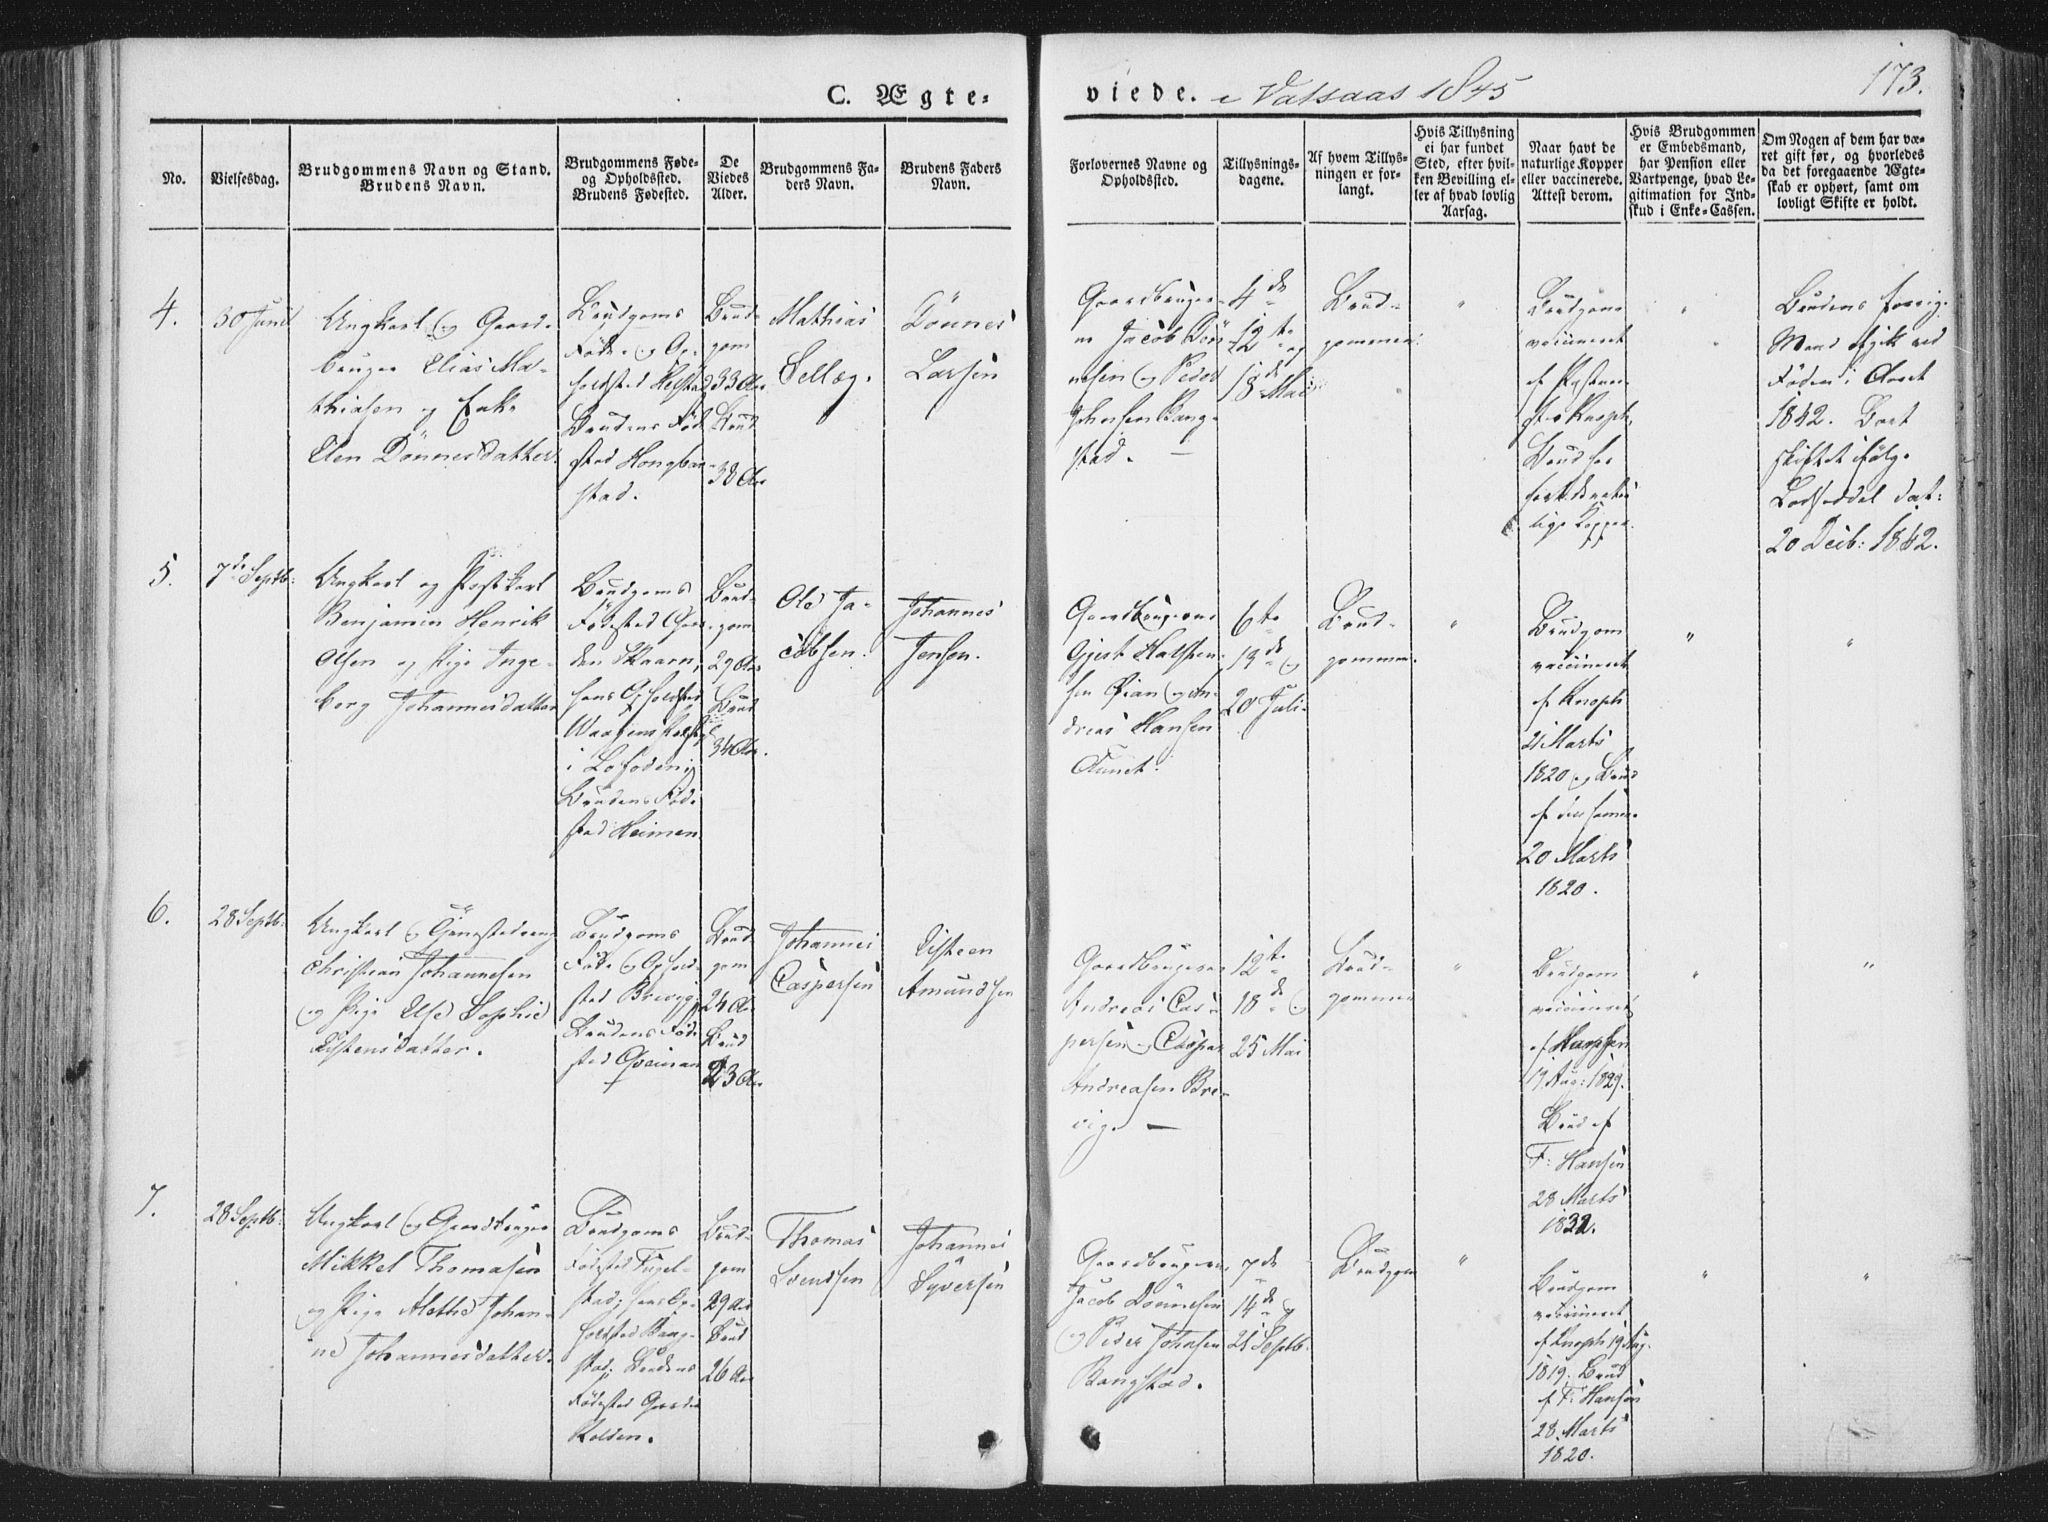 C. Ægte-
viede. i Vatsaas 1845
173.
No.
Vielsesdag.
Brudgommens Navn og Stand.
Brudens Navn.
Brudgommens Føde-
og Opholdsted.
Brudens Fødested.
De
Viedes
Alder.
Brudgommens Fa-
ders Navn.
Brudens Faders
Navn.
Forlovernes Navne og
Opholdssted.
Tillysnings-
dagene.
Af hvem Tillys-
ningen er for-
langt.
Hvis Tillysning
ei har fundet
Sted, efter hvil-
ken Bevilling el-
ler af hvad lovlig
Aarsag.
Naar havt de
naturlige Kopper
eller vaccinerede.
Attest derom.
Hvis Brudgommen
er Embedsmand,
har Pension eller
Vartpenge, hvad Le-
gitimation for Ind-
skud i Enke-Cassen.
Om Nogen af dem har væ-
ret gift før, og hvorledes
da det foregaaende Ægte-
skab er ophørt, samt om
lovligt Skifte er holdt.
4.
30 Junii
Ungkarl og Gaard-
bruger Elias Ma-
thiasen og Enke
Elen Dönnesdatter.
Brudgoms
Føde- og Op-
holdsted
Brudens Føde
sted
stad.
Brud-
gom
33 Aar
Brud
38 Aar
Mathias
Sellæg.
Dönnes
Larsen
Gaardbruger-
ne Jacob Dön-
nesen og Peder
Johnsen Bang-
stad. —
4de
12te og
18de Mai
Brud-
gommen.
"
Brudgom
vaccineret
af
Knoph,
Brud har
havt de natur
lige Kopper.
"
Brudens forrige
Mand afgik ved
Døden i Aaret
1842. Boet
skiftet ifølge
Lodseddel dat:
20 Decb: 1842.
5.
7de Septb:
Ungkarl og Postkarl
Benjamin Henrik
Olsen og Pige Inge-
borg Johannesdatter
Brudgoms
Fødested
Skaarn,
hans Opholdsted
i Lofoden;
Brudens Føde
sted Heimen
Brud-
gom
29 Aar
Brud
34 Aar.
Ole Ja-
cobsen.
Johannes
Jensen.
Gaardbrugerne
Gjert
sen Øian og An-
dreas Hansen
Aunet.
6te
13de og
20 Juli
Brud-
gommen.
"
Brudgom
vaccineret
af Knoph
21 Marts
1820 og Brud
af den samme
20 Marts
1820.
"
"
6.
28 Septb:
Ungkarl og
Christian Johannesen
og Pige Else Sophie
Østensdatter.
Brudgoms
Føde og Ophold-
sted Brevig,
Brudens Føde
sted
Brud
gom
24 Aar
Brud
23 Aar
Johannes
Caspersen
Østeen
Amundsen
Gaardbrugerne
Andreas Cas-
persen og Casper
Andreasen Bre-
vig. —
12te
18de og
25 Mai
Brud-
gommen
"
Brudgom
vaccineret
af
17 Aug: 1829.
Brud af
F: Hansen
28 Marts
1832.
"
"
7.
28 Septb:
Ungkarl og Gaardbruger
Mikkel Thomasen
og Pige Alethe Johan-
ne Johannesdatter
Brudgoms
Fødested Fugel-
stad; hans Op-
holdsted Bang-
stad; Brudens
Fødested Gaarden
Kolden.
Brud-
gom
29 Aar
Brud
26 Aar
Thomas
Svendsen
Johannes
Syversen
Gaardbrugerne
Jacob Dönnesen
og Peder Johnsen
Bangstad.
7de
14de og
21 Septb.
Brudgom
"
Brudgom
vaccineret
af Knoph 19 Aug.
1819; Brud
af F: Hansen
28 Marts
1820.
"
"